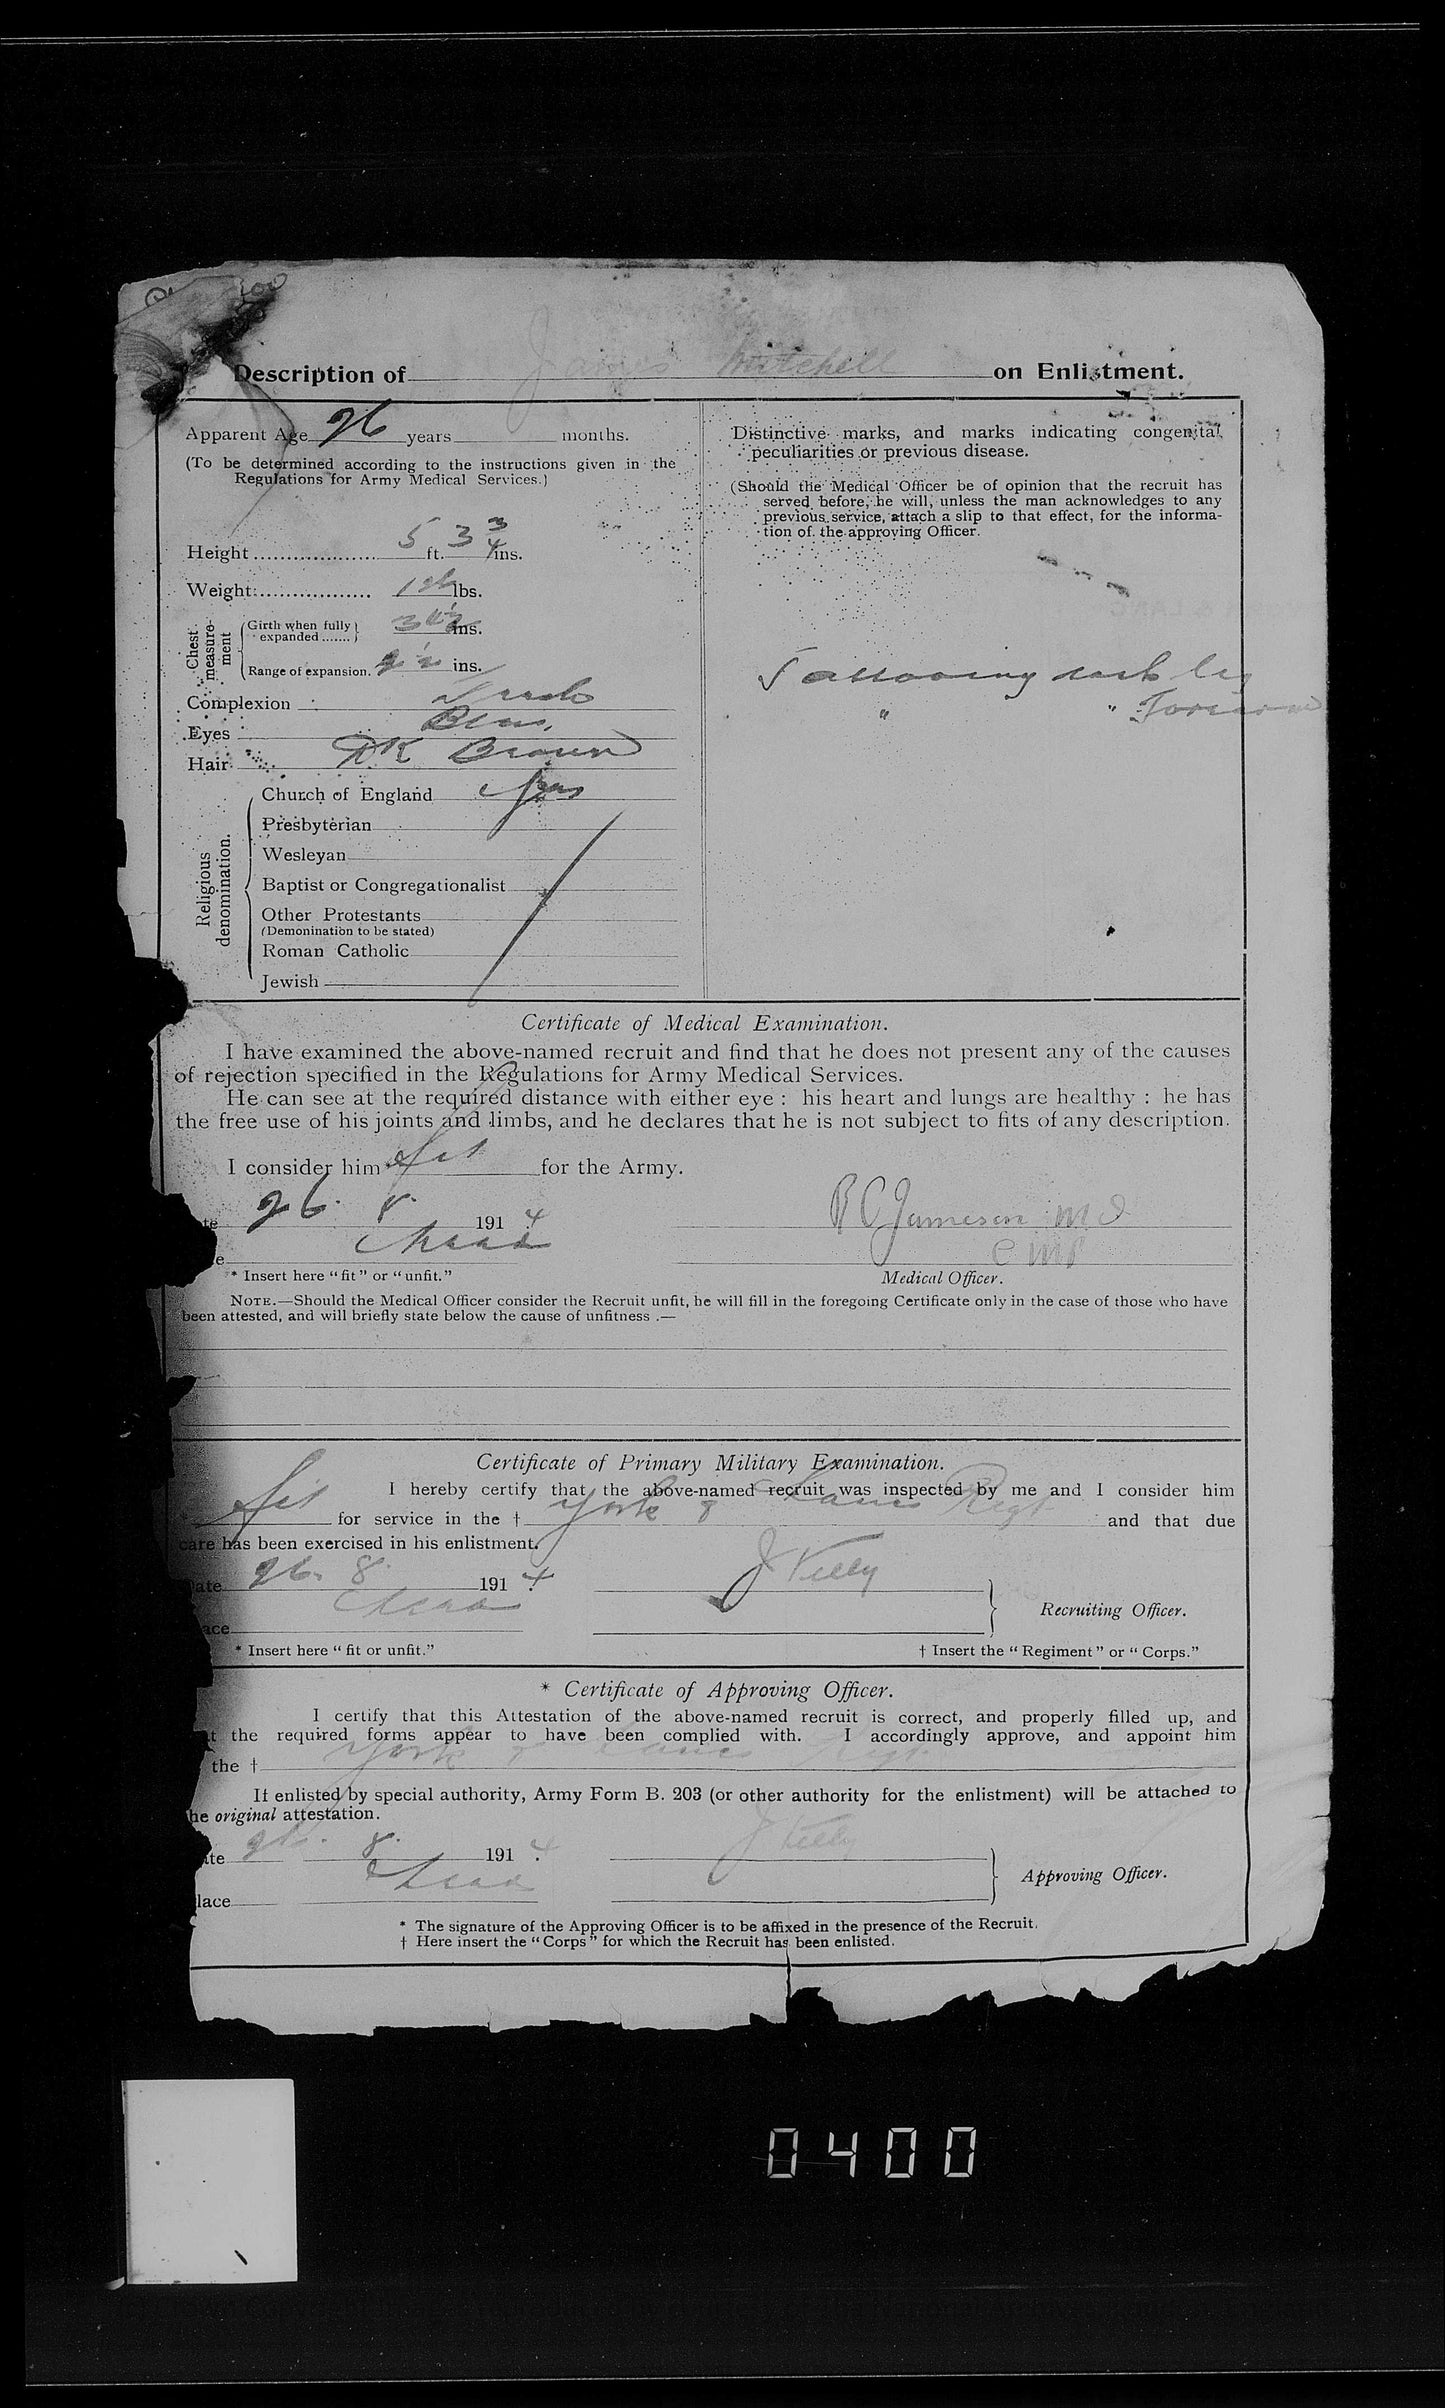 Description of James Mitchell on Enlistment.
Apparent Age 26 years months.
(To be determined according to the instructions given in the
Regulations for Army Medical Services.)
Height 5 ft. 3 3/4 ins.
Weight lbs.
Chest measure-ment
Girth when fully
expanded ins.
Range of expansion. ins.
Complexion Fresh
Eyes
Hair DK Brown
Religious denomination.
Church of England Yes
Presbyterian
Wesleyan
Baptist or Congregationalist
Other Protestants
(Demonination to be stated)
Roman Catholic
Jewish
Distinctive marks, and marks indicating congenital
peculiarities or previous disease.
(Should the Medical Officer be of opinion that the recruit has
served before, he will, unless the man acknowledges to any
previous service, attach a slip to that effect, for the informa-
tion of the approving Officer.
Tattooing each leg
" " Forearm
Certificate of Medical Examination.
I have examined the above-named recruit and find that he does not present any of the causes
of rejection specified in the Regulations for Army Medical Services.
He can see at the required distance with either eye : his heart and lungs are healthy : he has
the free use of his joints and limbs, and he declares that he is not subject to fits of any description.
I consider him* fit for the Army.
te 26. 8. 191 4. R C Jameson M D
e
Medical Officer.
* Insert here "fit" or "unfit."
NOTE.—Should the Medical Officer consider the Recruit unfit, he will fill in the foregoing Certificate only in the case of those who have
been attested, and will briefly state below the cause of unfitness .—
Certificate of Primary Military Examination.
I hereby certify that the above-named recruit was inspected by me and I consider him
fit for service in the † York & Lancs Regt and that due
care has been exercised in his enlistment.
ate 26. 8. 191 4. J Kelly
ace
Recruiting Officer.
* Insert here "fit or unfit."
† Insert the "Regiment" or "Corps."
* Certificate of Approving Officer.
I certify that this Attestation of the above-named recruit is correct, and properly filled up, and
t the required forms appear to have been complied with. I accordingly approve, and appoint him
the † York & Lancs Regt
If enlisted by special authority, Army Form B. 203 (or other authority for the enlistment) will be attached to
he original attestation.
te 26. 8. 191 4. J Kelly
lace
Approving Officer.
* The signature of the Approving Officer is to be affixed in the presence of the Recruit.
† Here insert the "Corps" for which the Recruit has been enlisted.
0400